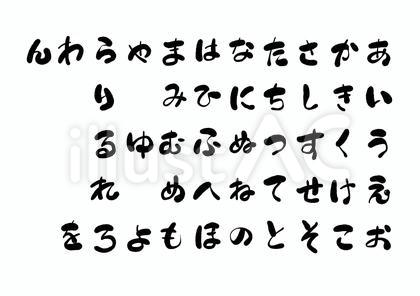 あいうえお
かきくけこ
さしすせそ
たちつてと
なにぬねの
はひふへほ
まみむめも
やゆよ
らりるれろ
わを
ん
illustAC